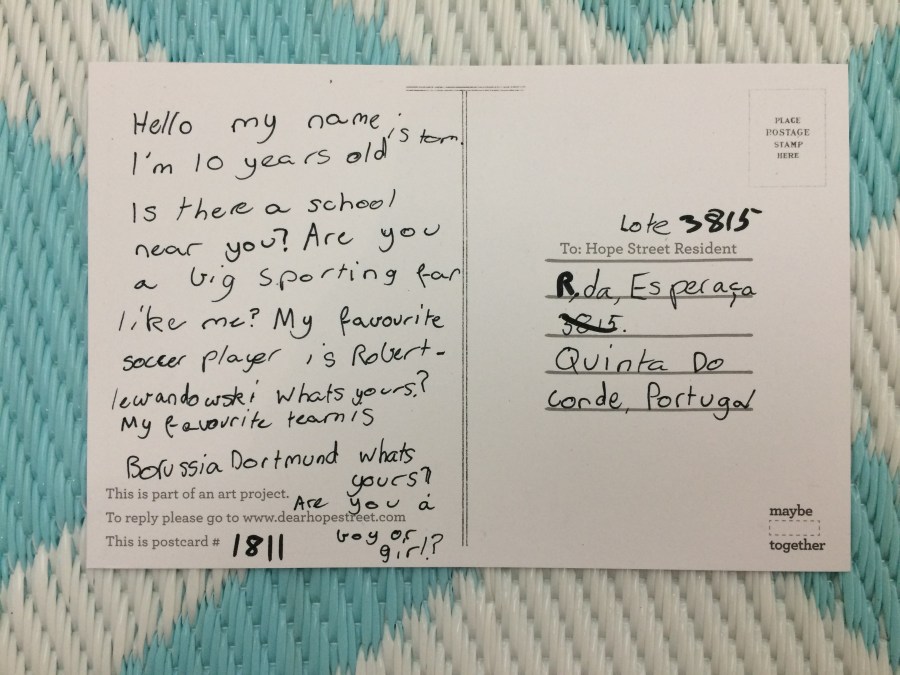 Hello my name is tom.
I'm 10 years old
Is there a school
near you? Are you
a big sporting fan
like me? My favourite
soccer player is Robert-
lewandowski whats yours?
My favourite team is
Borussia Dortmund whats
yours?
Are you a
boy or
girl?
This is part of an art project.
To reply please go to www.dearhopestreet.com
This is postcard # 1811
PLACE
POSTAGE
STAMP
HERE
Lote 3815
To: Hope Street Resident
R,da, Esperaça
3815.
Quinta Do
Conde, Portugal
maybe
together